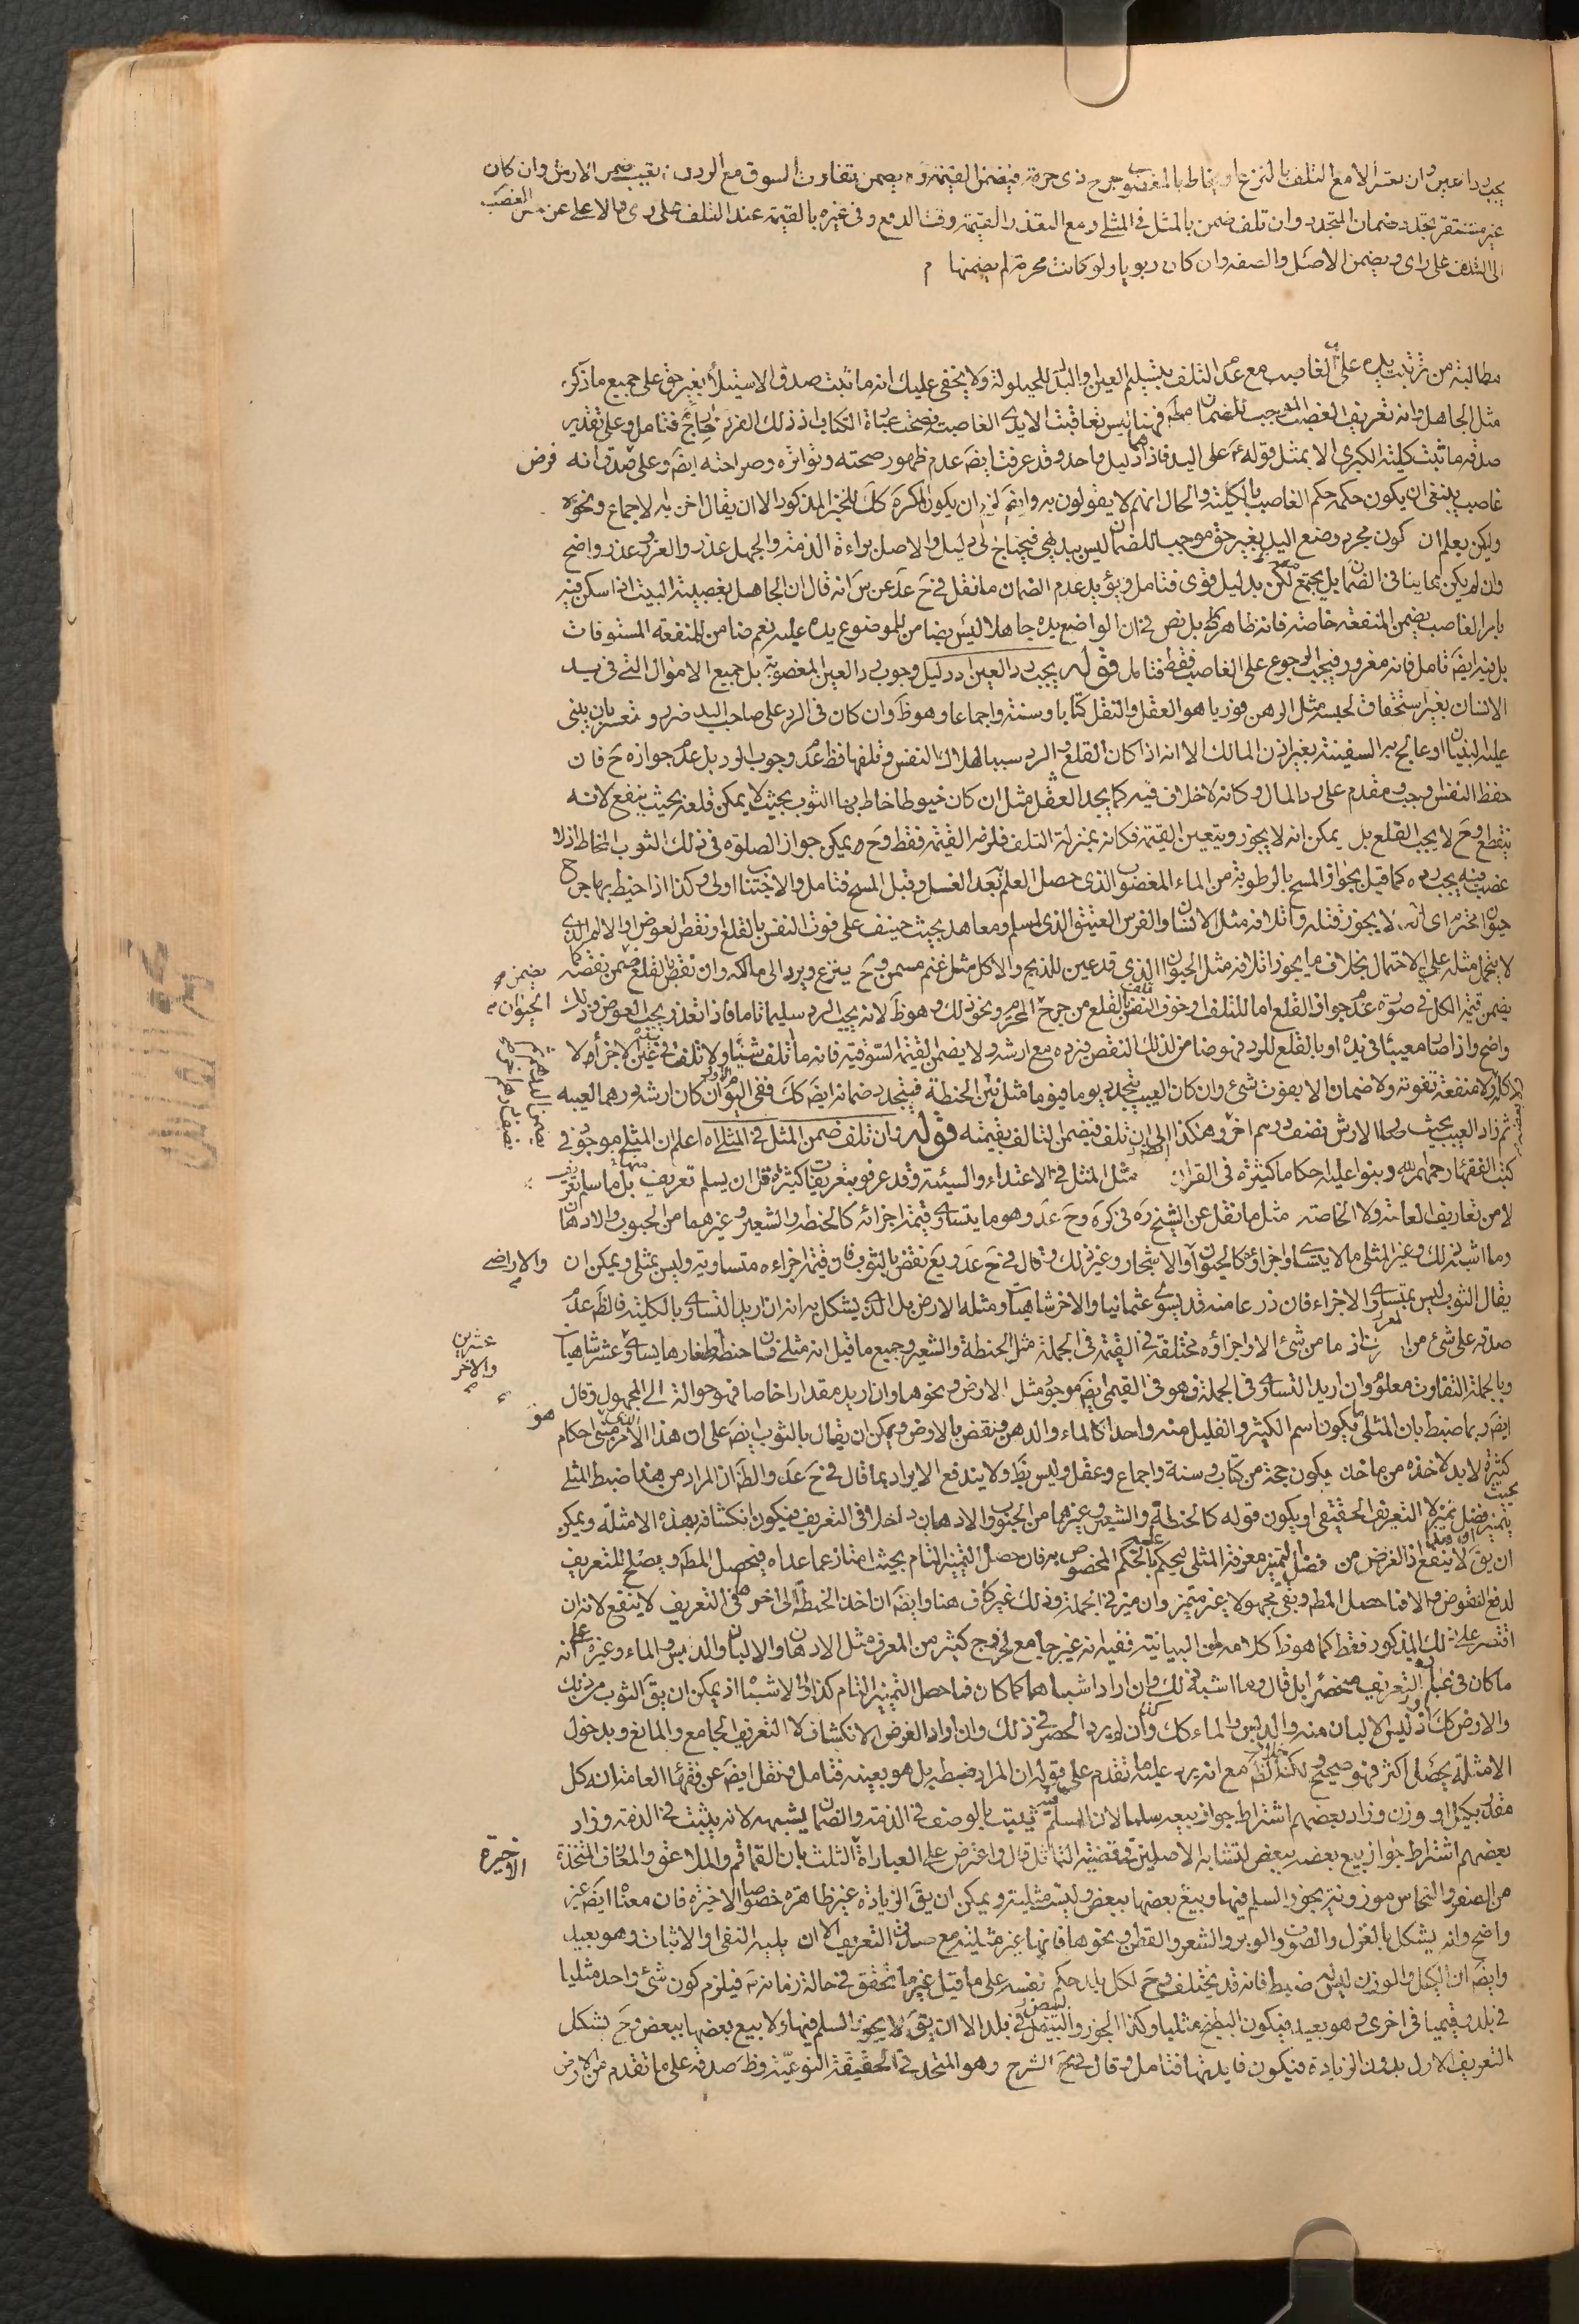 يجب رد العين وان تعسر الا مع التلف بالنزع او يخاط بالمغصوب جرح ذى حرمة فيضمن القيمة ولا يضمن تفاوت السوق مع الرد تعيب ضمن الارش وان كان
غير مستقر تجدد ضمان المتجدد وان تلف ضمن بالمثل فى المثلى ومع التعذر القيمة وقت الدفع وفى غيره بالقيمة عند التلف على راى والاعلى عن حين الغصب
الى التلف على راى ويضمن الاصل والصفه وان كان ربويا ولو كانت محرمة لم يضمنها م
مطالبة من ترتبت يده على الغاصب مع عدم التلف بتسليم العين والبدل للحيلولة ولا يخفى عليك انه ما ثبت صدق الاستيلاء بغير حق على جميع ما ذكر
مثل الجاهل وانه تعريف الغصب الموجب للضمان فهنا ليس تعاقبت الايدى الغاصبة وصحت عبارة الكتاب اذ ذلك الفرد خارج فتامل وعلى تقدير
صدقه ما ثبت كلية الكبرى الا بمثل قوله ع على اليد فاذا دليل واحد وقد عرفت ايضَ عدم ظهور صحته وتواتره وصراحته ايضَ وعلى صدق انه فرض
غاصب ينبغى ان يكون حكمه حكم الغاصب بالكلية والحال انهم لا يقولون به وايضَ ان يكون المكره كَكَ للخبر المذكور الا ان يقال اخرجه الاجماع ونحوه
ولكن يعلم ان كون مجرد وضع اليد بغير حق موجب للضمان ليس ببديهى فيحتاج الى دليل والاصل براءة الذمة والجهل عذر والغرور عذر واضح
وان لم يكن مما ينافى الضمان بل يجتمع لكن بدليل قوى فتامل ويؤيد عدم الضمان ما نقل فى حَ عَدَ عن سَ انه قال ان الجاهل بغصبية البيت اذا سكن فيه
بامر الغاصب يضمن المنفعة خاصة فانه ظاهر بل نص فى ان الواضع يده جاهلا ليس بضامن للموضوع يده عليه نعم ضامن للمنفعة المستوفات
بل فيه ايضَ تامل فانه مغرور فيجب الرجوع على الغاصب فقط فتامل قوله يجب رد العين اه دليل وجوب رد العين المغصوبة بل جميع الاموال التى فى يد
الانسان بغير استحقاق لحبسه مثل الرهن فوريا هو العقل والنقل كتابا وسنة واجماعا وهو ظَ وان كان فى الرد على صاحب اليد ضرر وتعسر بان يبنى
عليه البنيان او عالج به السفينة بغير اذن المالك الا انه اذا كان القلع والرد سببا لهلاك النفس وتلفها فظ عدم وجوب الرد بل عدم جوازه حَ فان
حفظ النفس وجب مقدم على رد المال وكانه لا خلاف فيه كما يجد العقل مثل ان كان خيوطا خاط بها الثوب بحيث لا يمكن قلعه بحيث ينفع لانه
ينقطع وحَ لا يجب القلع بل يمكن انه لا يجوز ويتعين القيمة فكانه بمنزلة التلف فلزم القيمة فقط وحَ يمكن جواز الصلوة فى ذلك الثوب المخاط اذلا
غصب فيه يجب رده كما قيل بجواز المسح بالرطوبة من الماء المغصوب الذى حصل العلم بَعد الغسل وقبل المسح فتامل والاجتناب اولى وكذا اذا خيط بها جرح
حيوان محترم اى انه لا يجوز قتله واتلافه مثل الانسان والفرس العتيق الذى لمسلم ومعاهد بحيث خيف على فوت النفس بالقلع ونقص العوض والالم الذى
لا يتحمل مثله على الاحتمال بخلاف ما يجوز اتلافه مثل الحيوان الذى قد عين للذبح والاكل مثل غنم مسمن وحَ ينزع ويرد الى مالكه وان نقص بالقلع ضمن نقصه كما يضمن
يضمن قيمة الكل فى صورة عدم جواز القلع اما للتلف او خوف النفس بالقلع من جرح المحترم ونحو ذلك وهو ظَ لانه يجب الرد سليما تاما فاذا تعذر يجب العوض وذلك الحيوان
واضح واذا صار معيبا فى يده او بالقلع للرد فهو ضامن لذلك النقص فيرده مع ارشه ولا يضمن القيمة السوقية فانه ما تلف شيئا ولا تلف فى عين الاجزاء لا
كلا ولا منفعة تفوته ولا ضمان الا بفوت شئ وان كان العيب يتجدد يوما فيوما مثل بَلّ الحنطة فيتجدد ضمانه ايضَ كَكَ ففى اليوم ان كان ارشه درهما لعيبه
ثم زاد العيب بحيث الارش نصف درهم اخر وهكذا الى ان تلف فيضمن التالف بقيمته قوله وان تلف ضمن المثل فى المثلى اه اعلم ان المثلى موجود فى
كتب الفقهاء رحمهم الله وبنوا عليه احكاما كثيرة فى القران مثل المثل فى الاعتداء والسيئة وقد عرفوه بتعريفات كثيرة قل ان يسلم تعريف منها بل ما سلم تعريف
لا من تعاريف العامة ولا الخاصة مثل ما نقل عن الشيخ رَه فى كَرَه وحَ عَدَ وهو ما يتساوى قيمة اجزائه كالحنطه والشعير وغيرهما من الحبوب والادهان
وما اشبه ذلك وغير المثلى ما لا يتساوى اجزاؤه كالحيوان والاشجار وغير ذلك وقال فى حَ عَدَ ويع نقض بالثوب فان قيمة اجزاءه متساوية وليس بمثلى ويمكن ان والاراضى
يقال الثوب ليس بمتساوى الاجزاء فان ذرعا منه قد يسوى عثمانيا والاخر شاهيا ومثله الارض بل الذى يشكل به انه ان اريد التساوى بالكلية فالظَ عدم
صدقه على شئ من اذ ما من شئ الا واجزاؤه مختلفة فى القيمة فى الجملة مثل الحنطة والشعير وجميع ما قيل انه مثلى فان حنطة يساوى عشر شاهيات عشرين والاخر
وبالجملة التفاوت معلوم وان اريد التساوى فى الجملة فهو فى القيمى ايضَ موجود مثل الارض ونحوها وان اريد مقدارا خاصا فهو حوالة الى المجهول وقال
ايضَ وربما ضبط بان المثلى ما يكون اسم الكثير والقليل منه واحدا كالماء والدهن فنقض بالارض ويمكن ان يقال بالثوب ايضَ على ان هذا الامر مبنى احكام
كثيرة لا بد لاخذه من ماخذ يكون حجة من كتاب وسنة واجماع وعقل وليس بظَ ولا يندفع الايراد بما قال فى حَ عَدَ والظَ ان المراد من هذا ضبط المثلى بحيث
يتميز فضل تميز لا التعريف الحقيقى او يكون قوله كالحنطة والشعير وغيرهما من الحبوب والادهان داخلا فى التعريف فيكون انكشافه بهذه الامثلة ويمكن
ان يقَ لا ينفع اذ الغرض من فضل التميز معرفة المثلى ليحكم عليه بالحكم المخصوص به فان حصل التميز التام بحيث امتاز عما عداه فيحصل المطَ ويصلح للتعريف
لدفع النقوض والا فما حصل المطَ وبقى مجهولا غير متميز وان ميز فى الجملة وذلك غير كاف هنا وايضَ ان اخذ الحنطة الى اخره فى التعريف لا ينفع لانه ان
اقتصر على ذلك المذكور فقط كما هو ظَ كلامه البيانية ففيه انه غير جامع لخروج كثير من المعرف مثل الادهان والالبان والدبس والماء وغيره على انه
ما كان فى عبارة التعريف منحصرا بل قال وما اشبه ذلك وان اراد اشباهها كما كان فما حصل التميز التام كذا فى الاشباه اذ يمكن ان يقَ الثوب من ذلك
والارض كَكَ اذ ليس الالبان منه والدبس والماء كَكَ وان لم يرد الحصر فى ذلك وان اراد الغرض الانكشاف لا التعريف الجامع والمانع وبدخول
الامثلة يحصل اكثر فهو صحيح ولكنه خلاف الظَ مع انه يرد عليه ما تقدم على قوله ان المراد ضبطه بل هو بعينه فتامل ونقل ايضَ عن فقهاء العامة انه كل
مقدر بكيل او وزن وزاد بعضهم اشتراط جواز بيعه سلما لان المسلم فيه يثبت بالوصف فى الذمة والضمان يشبهه لانه يثبت فى الذمة وزاد
بعضهم اشتراط جواز بيع بعضه ببعض لتشابه الاصلين فى قضية التماثل قال واعترض على العبارات الثلث بان القماقم والملاعق والمغارف المتخذة
من الصفر والنحاس موزونة يجوز السلم فيها وبيع بعضها ببعض وليست مثلية ويمكن ان يقَ الزيادة غير ظاهرة خصوصا الاخيرة فان معناه ايضَ غير الاخيرة
واضح وانه يشكل بالغزل والصوف والوبر والشعر والقطن ونحوها فانها غير مثلية مع صدق التعريف الا ان يلزم النفى والاثبات وهو بعيد
وايضَ ان الكيل والوزن ليس له ضبط فانه قد يختلف وحَ لكل بلد حكم نفسه على ما قيل غير ما تحقق فى حالة زمانه صَ فيلزم كون شئ واحد مثليا
فى بلد وقيميا فى اخرى وهو بعيد فيكون البطيخ مثليا وكذا الجوز والبيض فى بلد الا ان يقَ لا يجوز السلم فيها ولا بيع بعضها ببعض وحَ يشكل
التعريف الاول بدون الزيادة فيكون فايدتها فتامل وقال فى الشرح وهو المتحد فى الحقيقة النوعية وظَ صدقه على ما تقدم من الارض